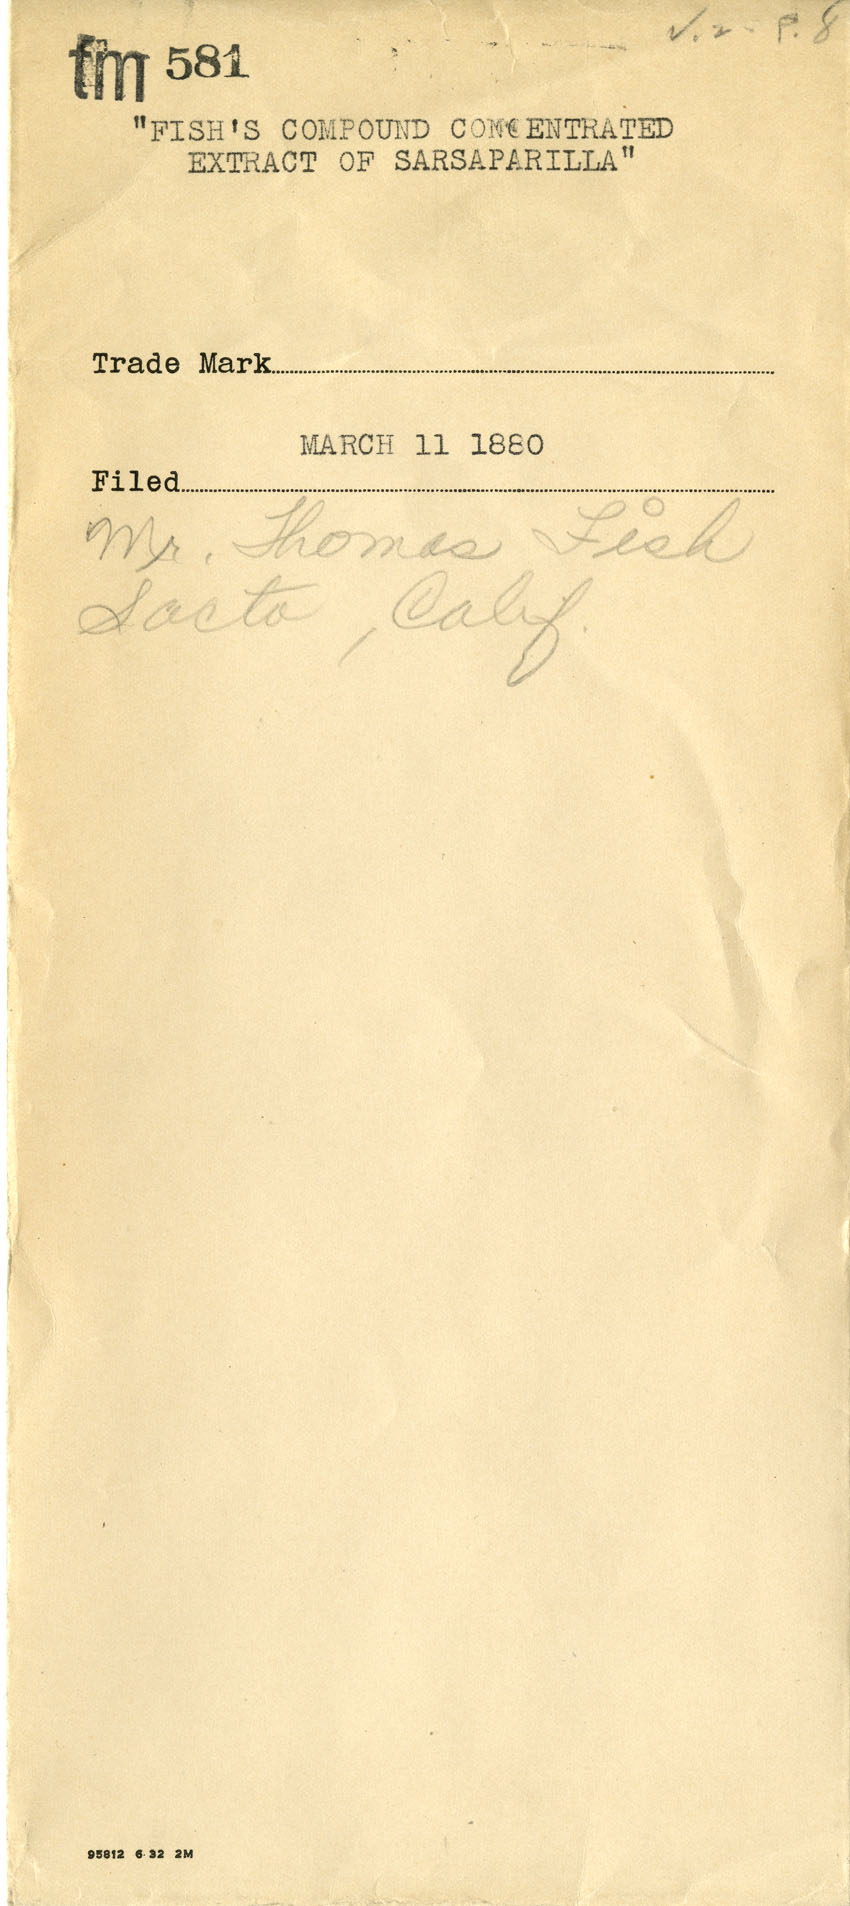 V. 2 - P. 8
tm 581
"FISH'S COMPOUND CONCENTRATED
EXTRACT OF SARSAPARILLA"
Trade Mark
MARCH 11 1880
Filed
Mr. Thomas Fish
Sacto, Calif.
95812 6-32 2M